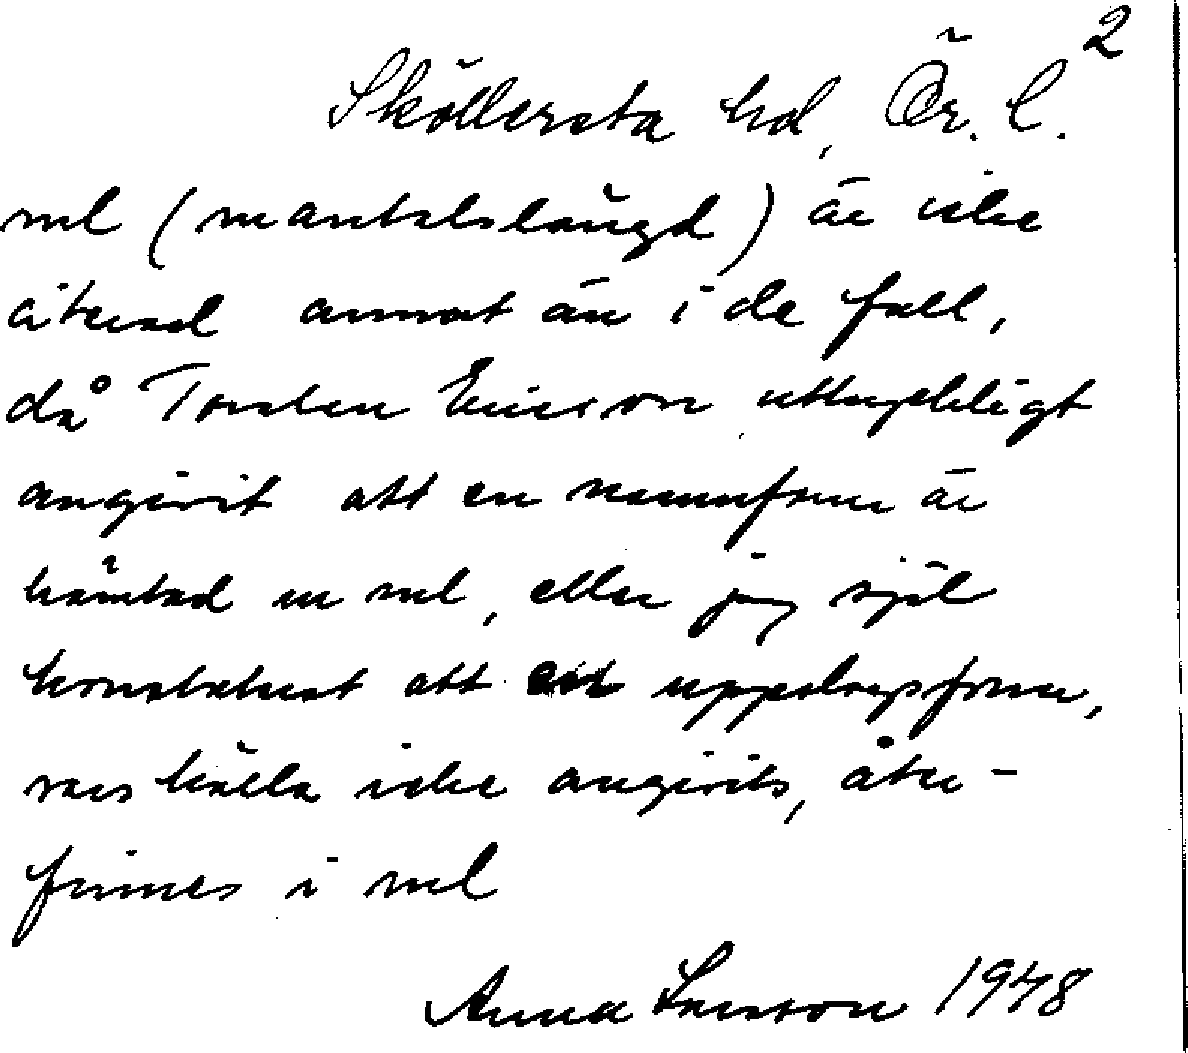 2
Sköllersta hd, Ör. l.
ml (mantalslängd) är icke
citerad annat än i de fall,
då Torsten Ericsson uttryckligt
angivit att en namnform är
hämtad ur ml, eller jag själ
konstaterat att en uppslagsform,
vars källa icke angivits, åter-
finnes i ml
Anna Larsson 1948